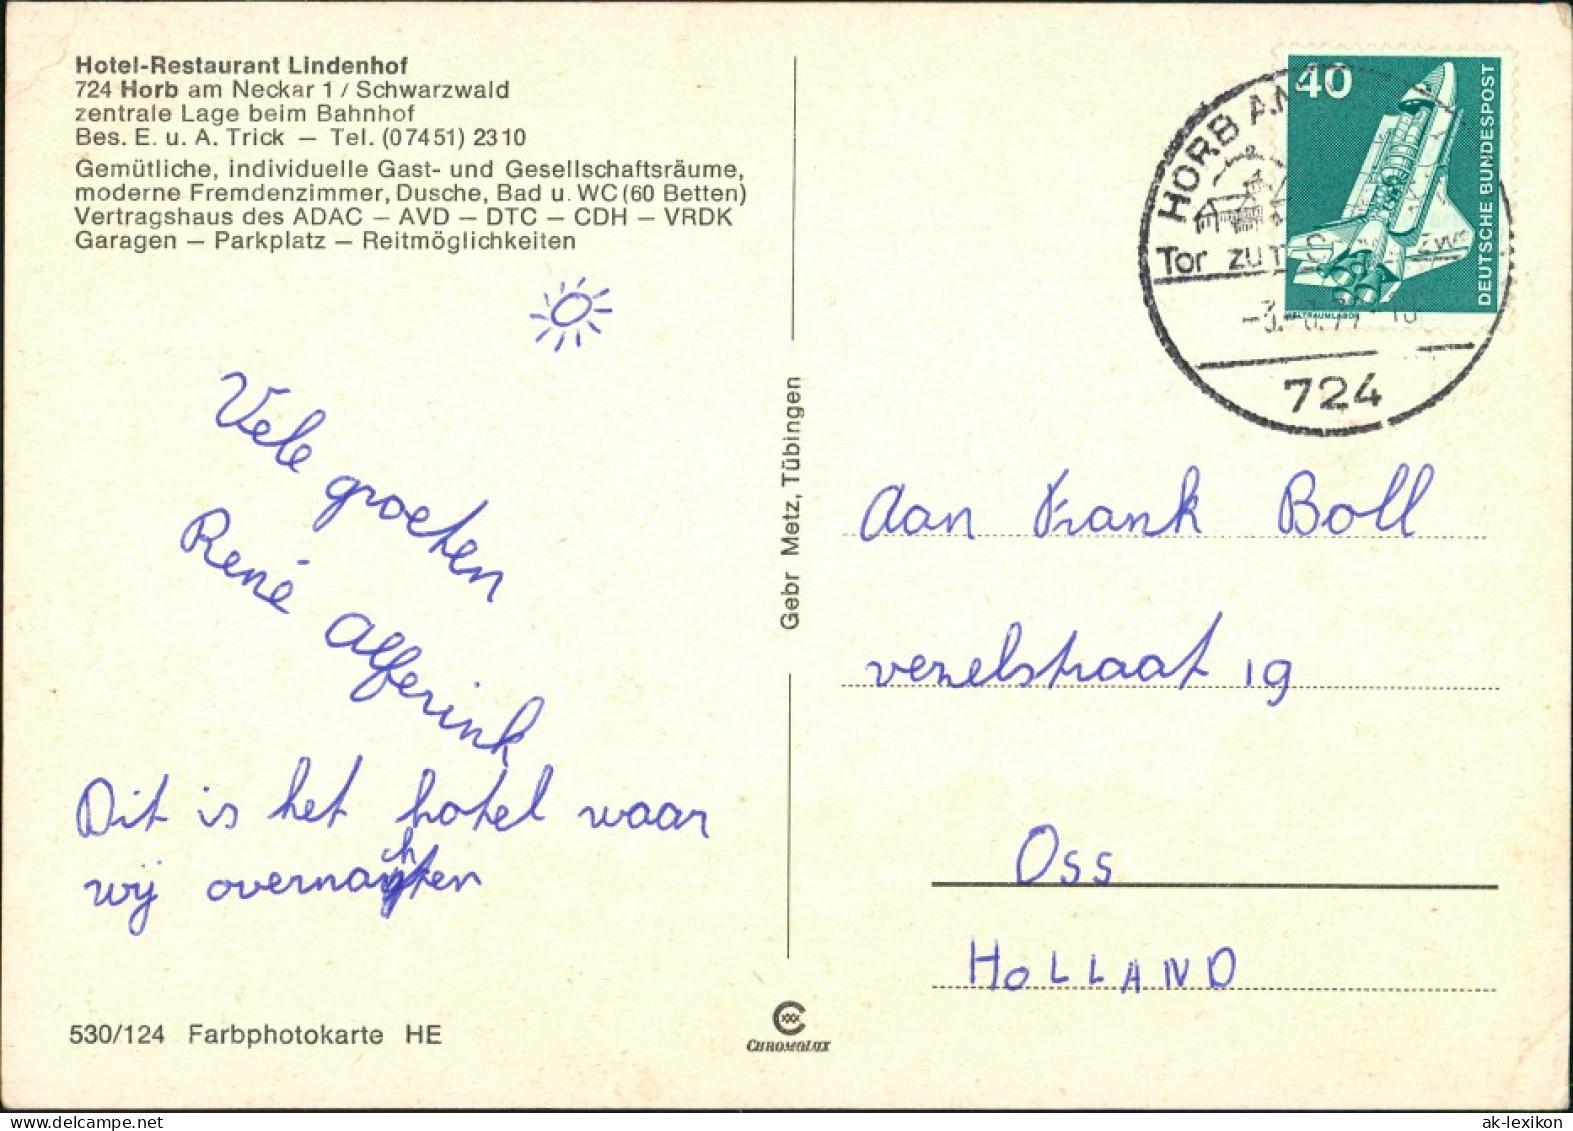 Hotel-Restaurant Lindenhof
724 Horb am Neckar 1 / Schwarzwald
zentrale Lage beim Bahnhof
Bes. E. u. A. Trick — Tel. (07451) 2310
Gemütliche, individuelle Gast- und Gesellschaftsräume,
moderne Fremdenzimmer, Dusche, Bad u. WC (60 Betten)
Vertragshaus des ADAC — AVD — DTC — CDH — VRDK
Garagen — Parkplatz — Reitmöglichkeiten
Vele groeten
René Alferink
Dit is het hotel waar
wij overnachten
530/124 Farbphotokarte HE
Gebr Metz, Tübingen
CHROMOLUX
40
DEUTSCHE BUNDESPOST
WELTRAUMLABOR
HORB AM
Tor zum
724
Aan Frank Boll
vezelstraat 19
Oss
HOLLAND
ak-lexikon